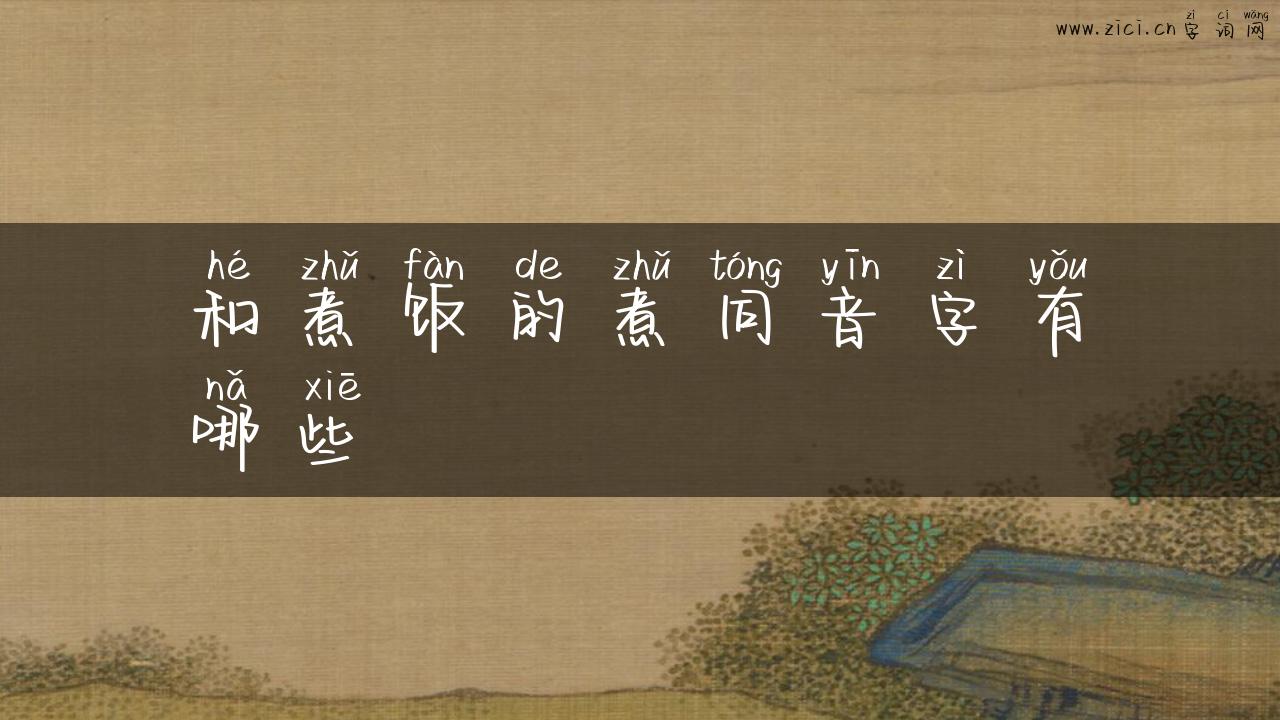 zì cí wǎng
www.zici.cn 字词网
hé zhǔ fàn de zhǔ tóng yīn zì yǒu
和煮饭的煮同音字有
nǎ xiē
哪些